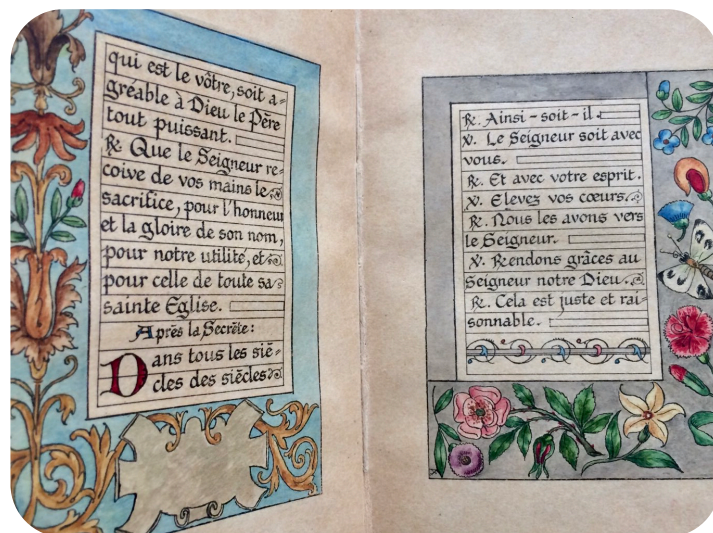 qui est le vôtre, soit a-
gréable à Dieu le Père
tout puissant.
℟. Que le Seigneur re-
çoive de vos mains le
sacrifice, pour l'honneur
et la gloire de son nom,
pour notre utilité, et
pour celle de toute sa
sainte Eglise.
Après la Secrète:
Dans tous les siè-
cles des siècles
℟. Ainsi-soit-il.
℣. Le Seigneur soit avec
vous.
℟. Et avec votre esprit.
℣. Elevez vos cœurs.
℟. Nous les avons vers
le Seigneur.
℣. Rendons grâces au
Seigneur notre Dieu.
℟. Cela est juste et rai-
sonnable.